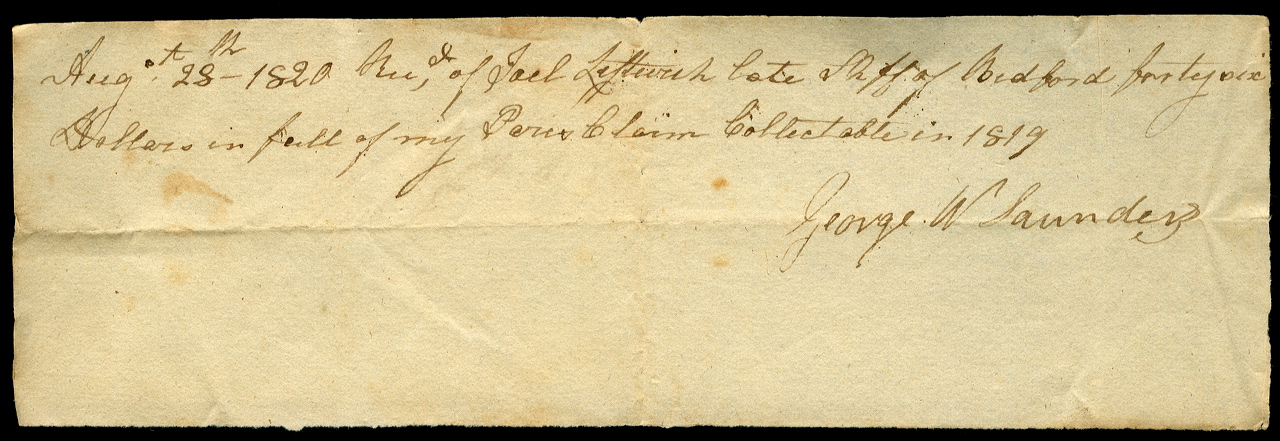 Augst. 28th - 1820 Recd, of Joel Leftwich late Shff of Bedford forty six
Dollars in full of my Claim Collectable in 1819
George W Saunders